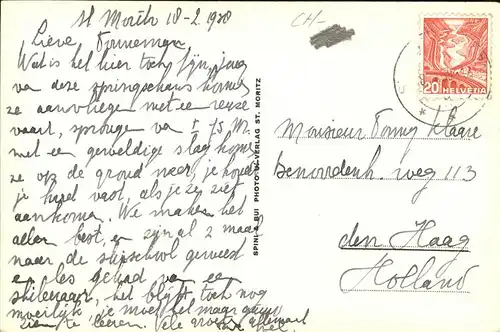 St Moritz 18-2. 1938
CH-
Lieve Tonneman
Wat is het hier toch fijn, jong
van deze springschans komen
ze aanvliegen met een reuze
vaart, sprongen van ± 75 M.
met een geweldige slag komen
ze op de grond neer, je houdt
je hart vast, als je ze ziet
aankomen. We maken het
allen best, en zijn al 2 maal
naar de skischool geweest
en les gehad van een
skileraar, het blijft toch nog
moeilijk je moet het maar gauw
zien te leeren. Vele groeten
SPINI & RUI PHOTO VERLAG ST. MORITZ
20 HELVETIA
Monsieur Tonny
weg 113
den Haag
Holland